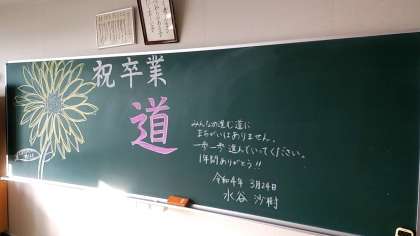 祝卒業
道
みんなの進む道に
まちがいはありません。
一歩一歩進んでいってください。
1年間ありがとう!!
令和4年 3月24日
水谷 沙樹